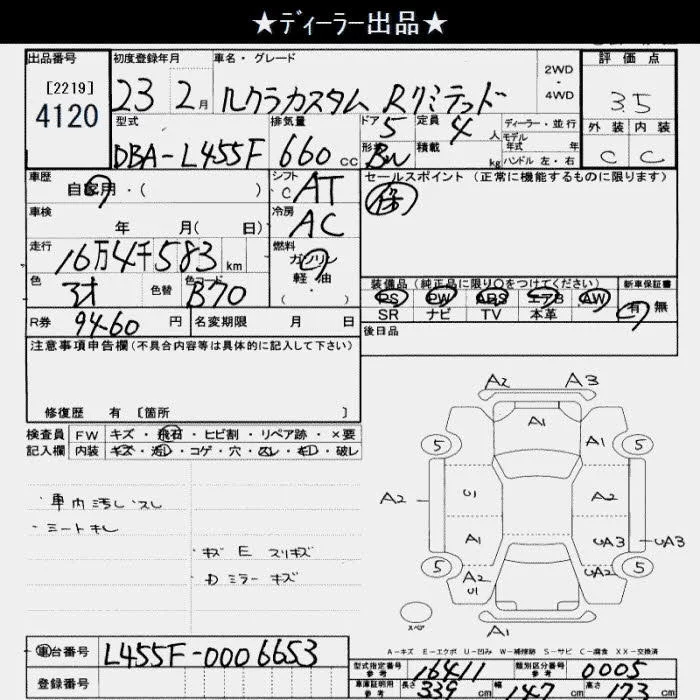 ★ディーラー出品★
出品番号 初度登録年月 車名・グレード 評価点
[2219]
4120
23 2月 ルクラカスタム Rリミテッド 2WD・4WD 3.5
型式 排気量 ドア 定員 ディーラー・並行
DBA-L455F 660cc 5 4人 モデル年式 年 外装 内装
形状 積載 kg ハンドル 左・右 C C
車歴 シフト セールスポイント (正常に機能するものに限ります)
自家用・( ) C AT
車検 冷房
年 月( 日) AC
走行 燃料
16万4千583km ガソリン
軽・油
( ・ )
色 色替 色コード B70
装備品 (純正品に限り〇をつけてください) 新車保証書
PS PW ABS エアB AW 有 無
SR ナビ TV 本革
R券 9460円 名変期限 月 日 後日品
注意事項申告欄(不具合内容等は具体的に記入して下さい)
修復歴 有 〔箇所 〕
検査員 FW キズ・飛石・ヒビ割・リペア跡・×要
記入欄 内装 キズ・汚レ・コゲ・穴・スレ・キレ・破レ
・車内汚し、スレ
・シートキレ
・キズ E スリキズ
・Dミラーキズ
A2 A3
A1
5 A1 5
A2 U1 A2
A1 UA3 UA3
5 A2 U1 UA2 5
スペア
A1
A-キズ E-エクボ U-凹み W-補修跡 S-サビ C-腐食 XX-交換済
車台番号 L455F-0006653
登録番号
型式指定番号 参考 16411 類別区分番号 参考 0005
車庫証明用 参考 長さ 339cm 幅 147cm 高さ 173cm